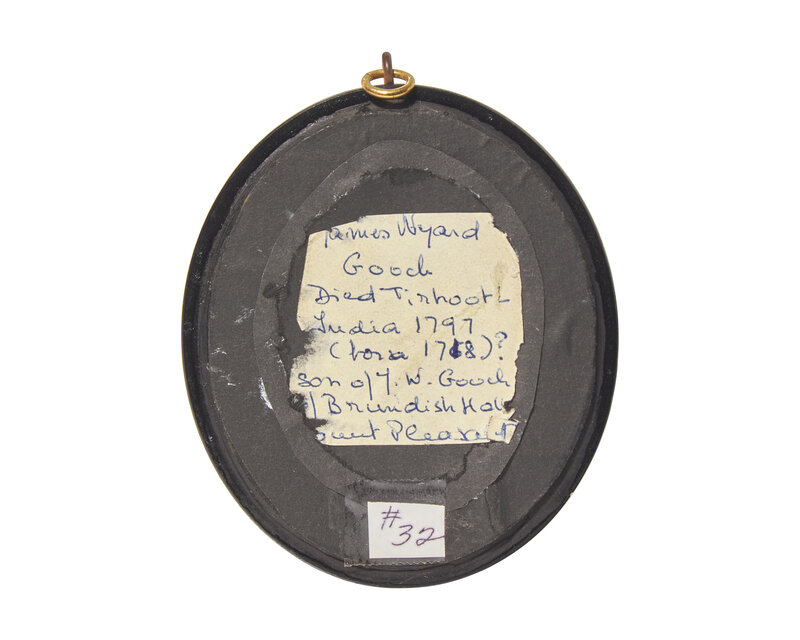 James Wyard
Gooch
Died Tirhoot
India 1797
(born 1768)?
son of T. W. Gooch
of Brundish Hall
ount Pleasant
#32